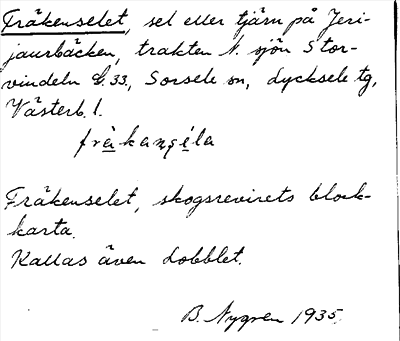 Fräkenselet, sel eller tjärn på Jeri-
jaurbäcken, trakten N. sjön Stor-
vindeln G.33, Sorsele sn, Lycksele tg,
Västerb. l.
frä̀kansę́la
Fräkenselet, skogsrevirets block-
karta.
Kallas även Lobblet.
B. Nygren 1935.